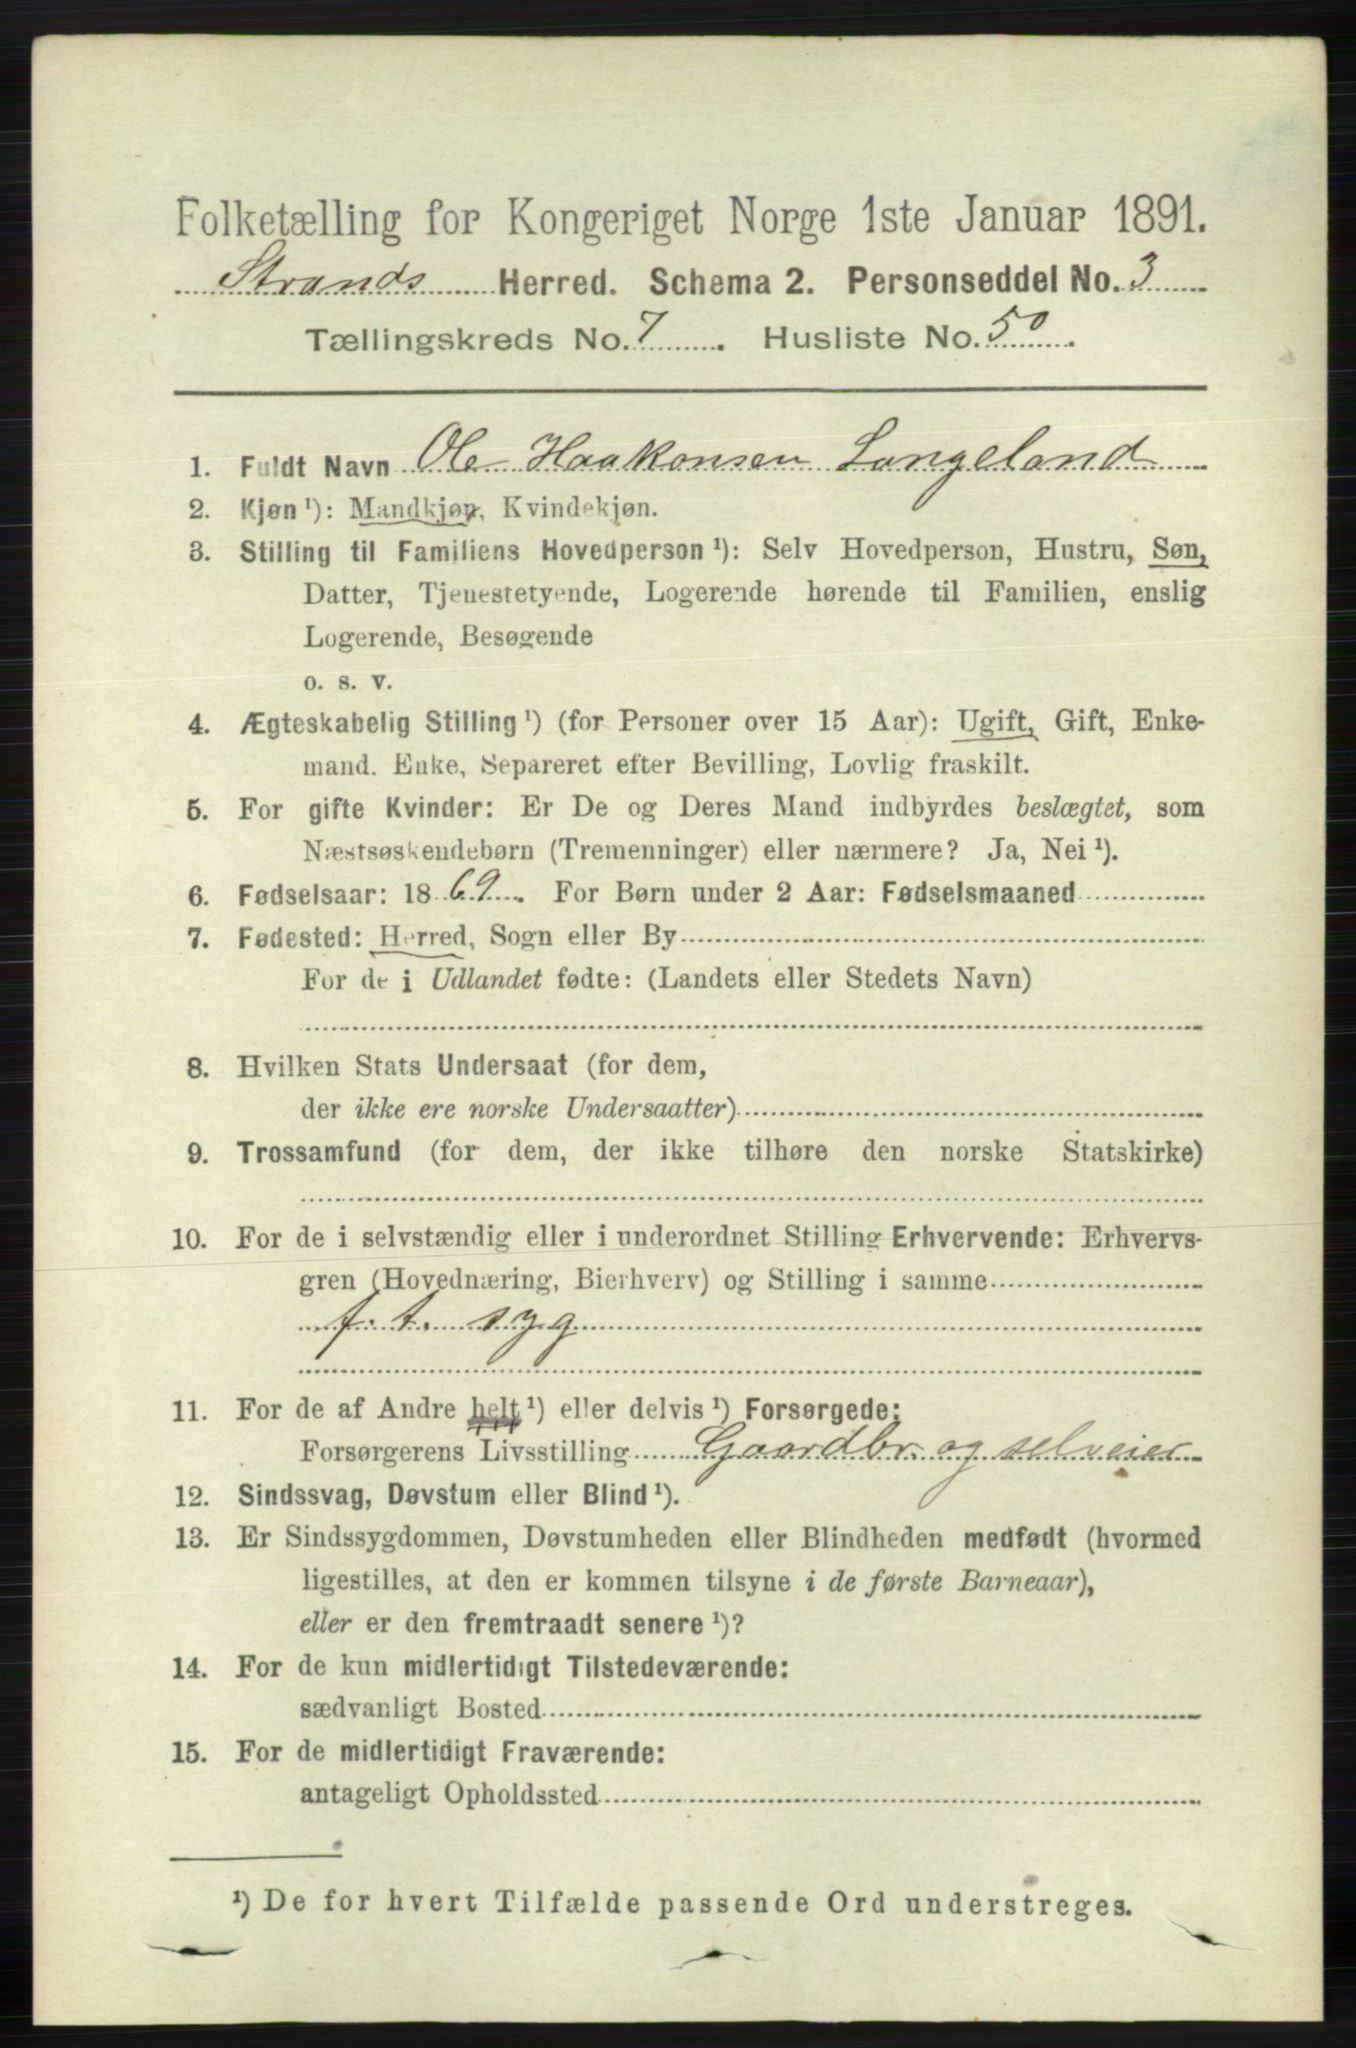 Folketælling for Kongeriget Norge 1ste Januar 1891.
Strands Herred. Schema 2. Personseddel No. 3
Tællingskreds No. 7. Husliste No. 50.
1. Fuldt Navn Ole Haakonsen Langeland
2. Kjøn ¹): Mandkjøn, Kvindekjøn.
3. Stilling til Familiens Hovedperson ¹): Selv Hovedperson, Hustru, Søn,
Datter, Tjenestetyende, Logerende hørende til Familien, enslig
Logerende, Besøgende
o. s. v.
4. Ægteskabelig Stilling ¹) (for Personer over 15 Aar): Ugift, Gift, Enke-
mand. Enke, Separeret efter Bevilling, Lovlig fraskilt.
5. For gifte Kvinder: Er De og Deres Mand indbyrdes beslægtet, som
Næstsøskendebørn (Tremenninger) eller nærmere? Ja, Nei ¹).
6. Fødselsaar: 1869. For Børn under 2 Aar: Fødselsmaaned
7. Fødested: Herred, Sogn eller By
For de i Udlandet fødte: (Landets eller Stedets Navn)
8. Hvilken Stats Undersaat (for dem,
der ikke ere norske Undersaatter)
9. Trossamfund (for dem, der ikke tilhøre den norske Statskirke)
10. For de i selvstændig eller i underordnet Stilling Erhvervende: Erhvervs-
gren (Hovednæring, Bierhverv) og Stilling i samme
f. t. syg
11. For de af Andre helt ¹) eller delvis ¹) Forsørgede:
Forsørgerens Livsstilling Gaardbr. og selveier
12. Sindssvag, Døvstum eller Blind ¹).
13. Er Sindssygdommen, Døvstumheden eller Blindheden medfødt (hvormed
ligestilles, at den er kommen tilsyne i de første Barneaar),
eller er den fremtraadt senere ¹)?
14. For de kun midlertidigt Tilstedeværende:
sædvanligt Bosted
15. For de midlertidigt Fraværende:
antageligt Opholdssted
¹) De for hvert Tilfælde passende Ord understreges.